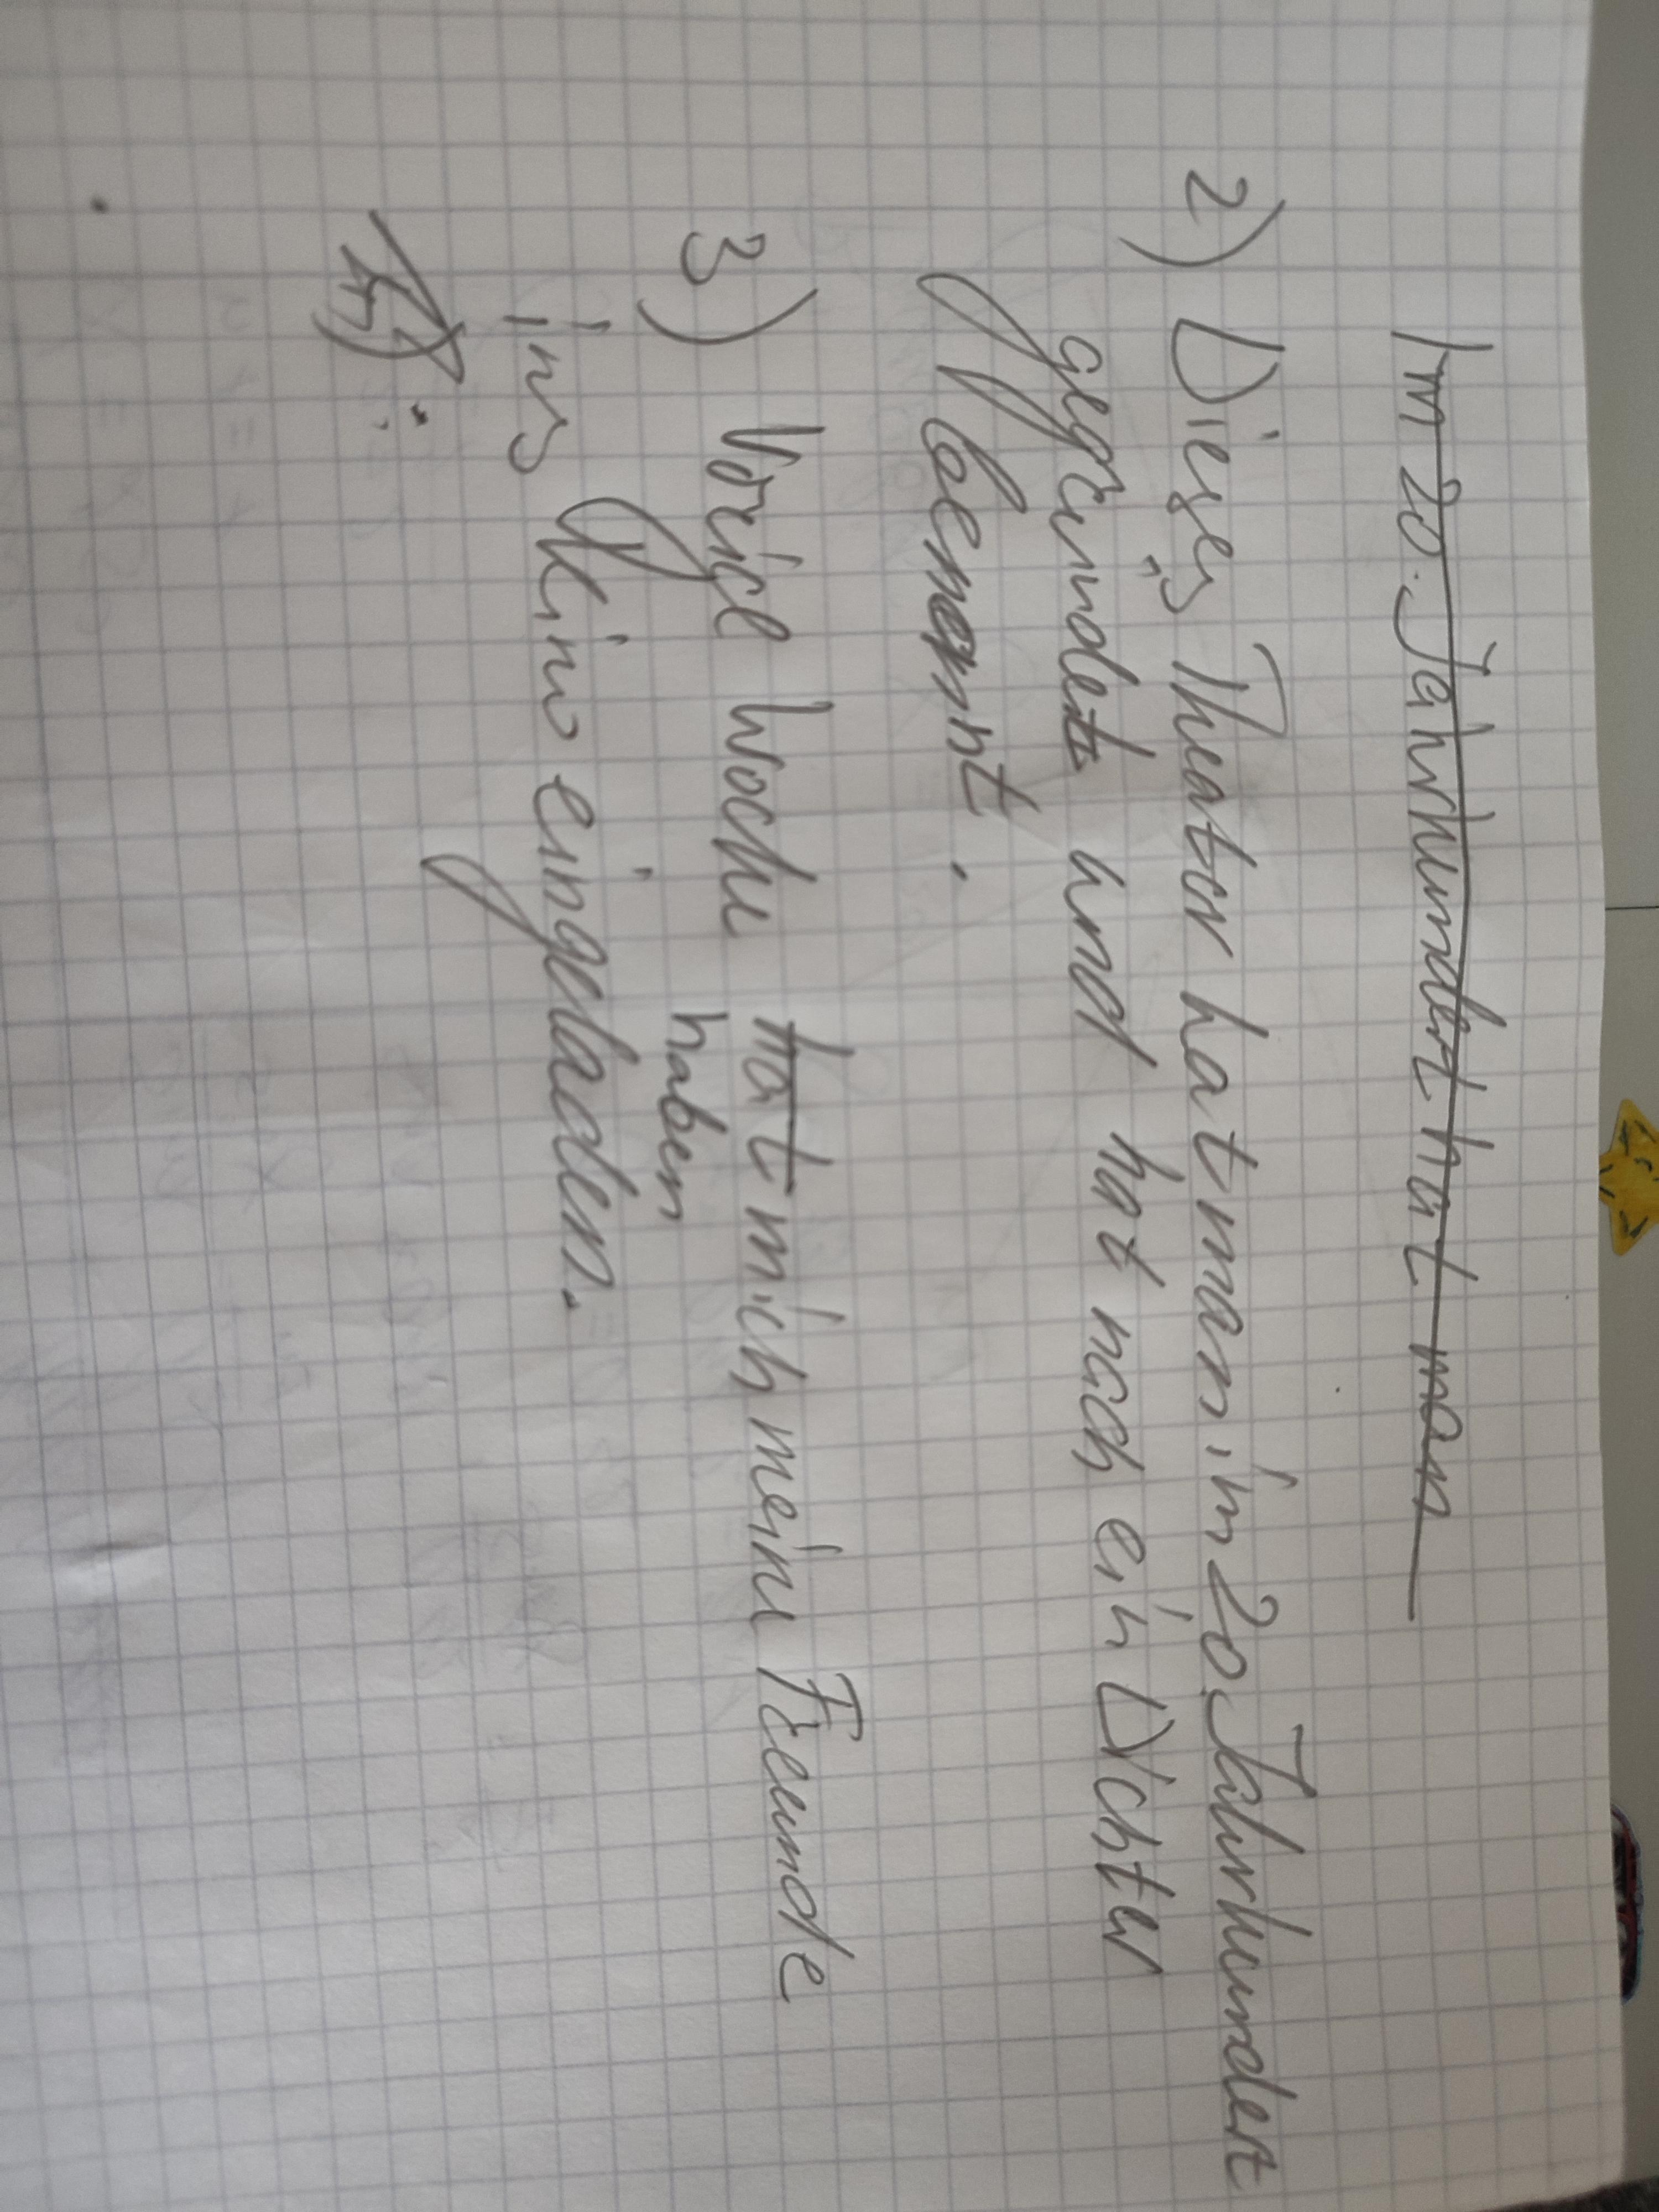 Im 20. Jahrhundert hat man
2) Dieses Theater hat man im 20. Jahrhundert
gegründet und hat nach ein Dichter
benennt.
3) Vorige Woche hat mich meine Freunde
haben
ins Kino eingeladen.